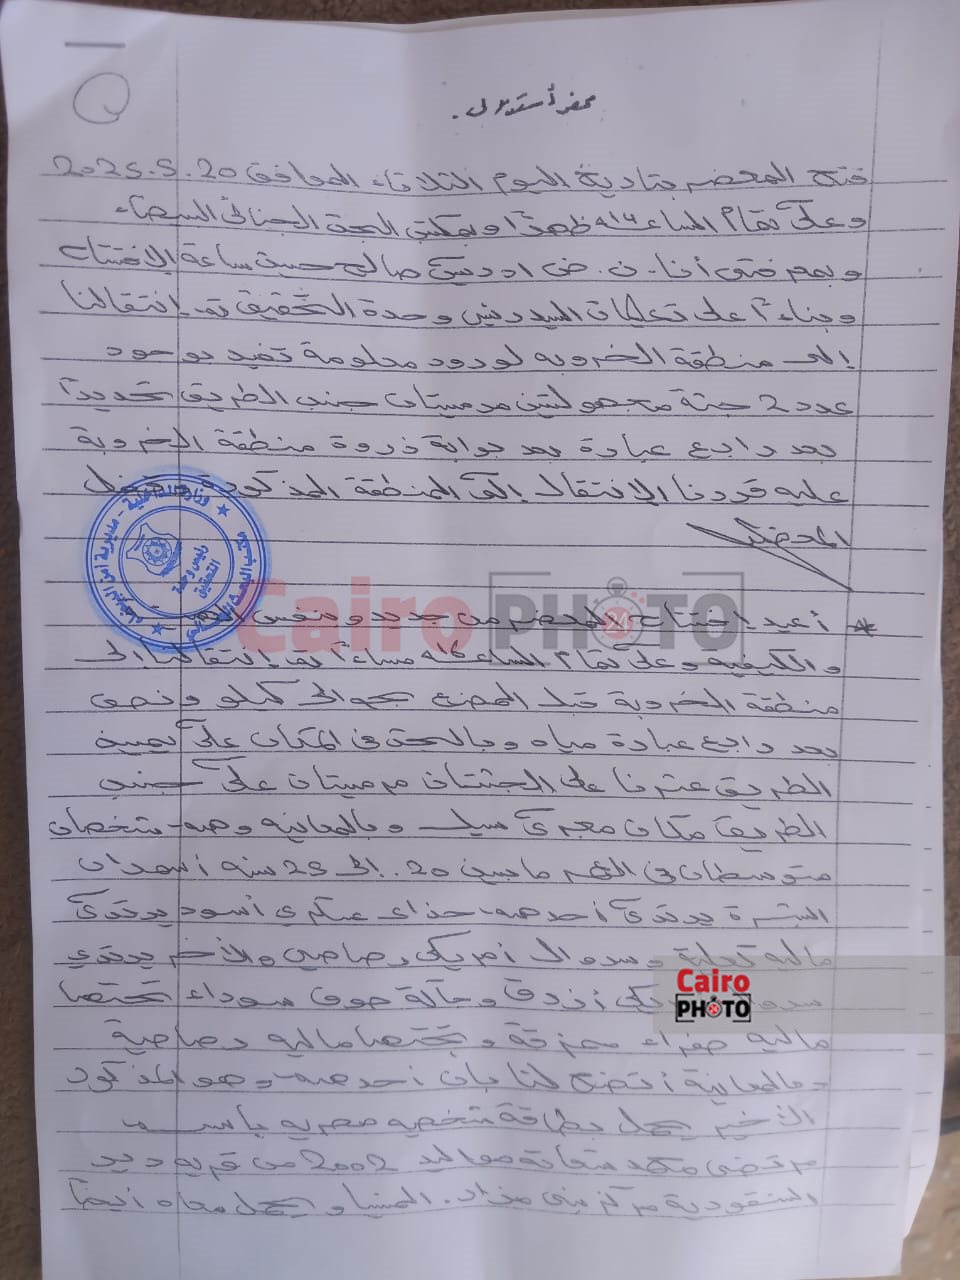 محضر أستدلال.
فتح المحضر بتاريخ اليوم الثلاثاء الموافق 2025.5.20
وعلى تمام الساعة 14 ظهراً وبمكتب البحث الجنائي السيما
وبمعرفتي أنا ن. ض ادريس صالح حسين ساعة الافتتاح
وبناءً على تعليمات السيد رئيس وحدة التحقيق تم انتقالنا
إلى منطقة الخروبه لورود معلومة تفيد بوجود
عدد 2 جثة مجهولتين مرميتان جنب الطريق تحديداً
بعد رابع عبارة بعد بوابة ذروة منطقة الخروبة
عليه قررنا الانتقال إلى المنطقة المذكورة
* أعيد افتتاح المحضر من جديد وبنفس
والكيفيه وعلى تمام الساعة 16 مساءً تم انتقالنا إلى
منطقة الخروبة قبل المصنع بحوالي كيلو ونصف
بعد رابع عبارة مياه وبالبحث في المكان على يمين
الطريق عثرنا على الجثتان مرميتان على جنب
الطريق مكان مجرى سيل وبالمعاينه وجد شخصان
متوسطان في العمر ما بين 20 إلى 25 سنه أسمران
البشرة يرتدي أحدهم حذاء عسكري أسود يرتدي
ماليه وسروال أمريكي رصاصي والآخر يرتدي
أزرق صوف سوداء تحتها
ماليه صفراء ممزقة وتحتها ماليه رصاصية
وبالمعاينة أتضح لنا بان أحدهم وهو المذكور
الأخير يحمل بطاقة شخصيه مصريه باسم
مرتضى محمد شحاتة مواليد 2002 من قريه دير
السنقورية مركز بني مزار. المنيا ويحمل معاه أيضاً
وزارة الداخلية - مديرية امن
رئيس وحدة
التحقيق
Cairo PHOTO
24
Cairo
PHOTO